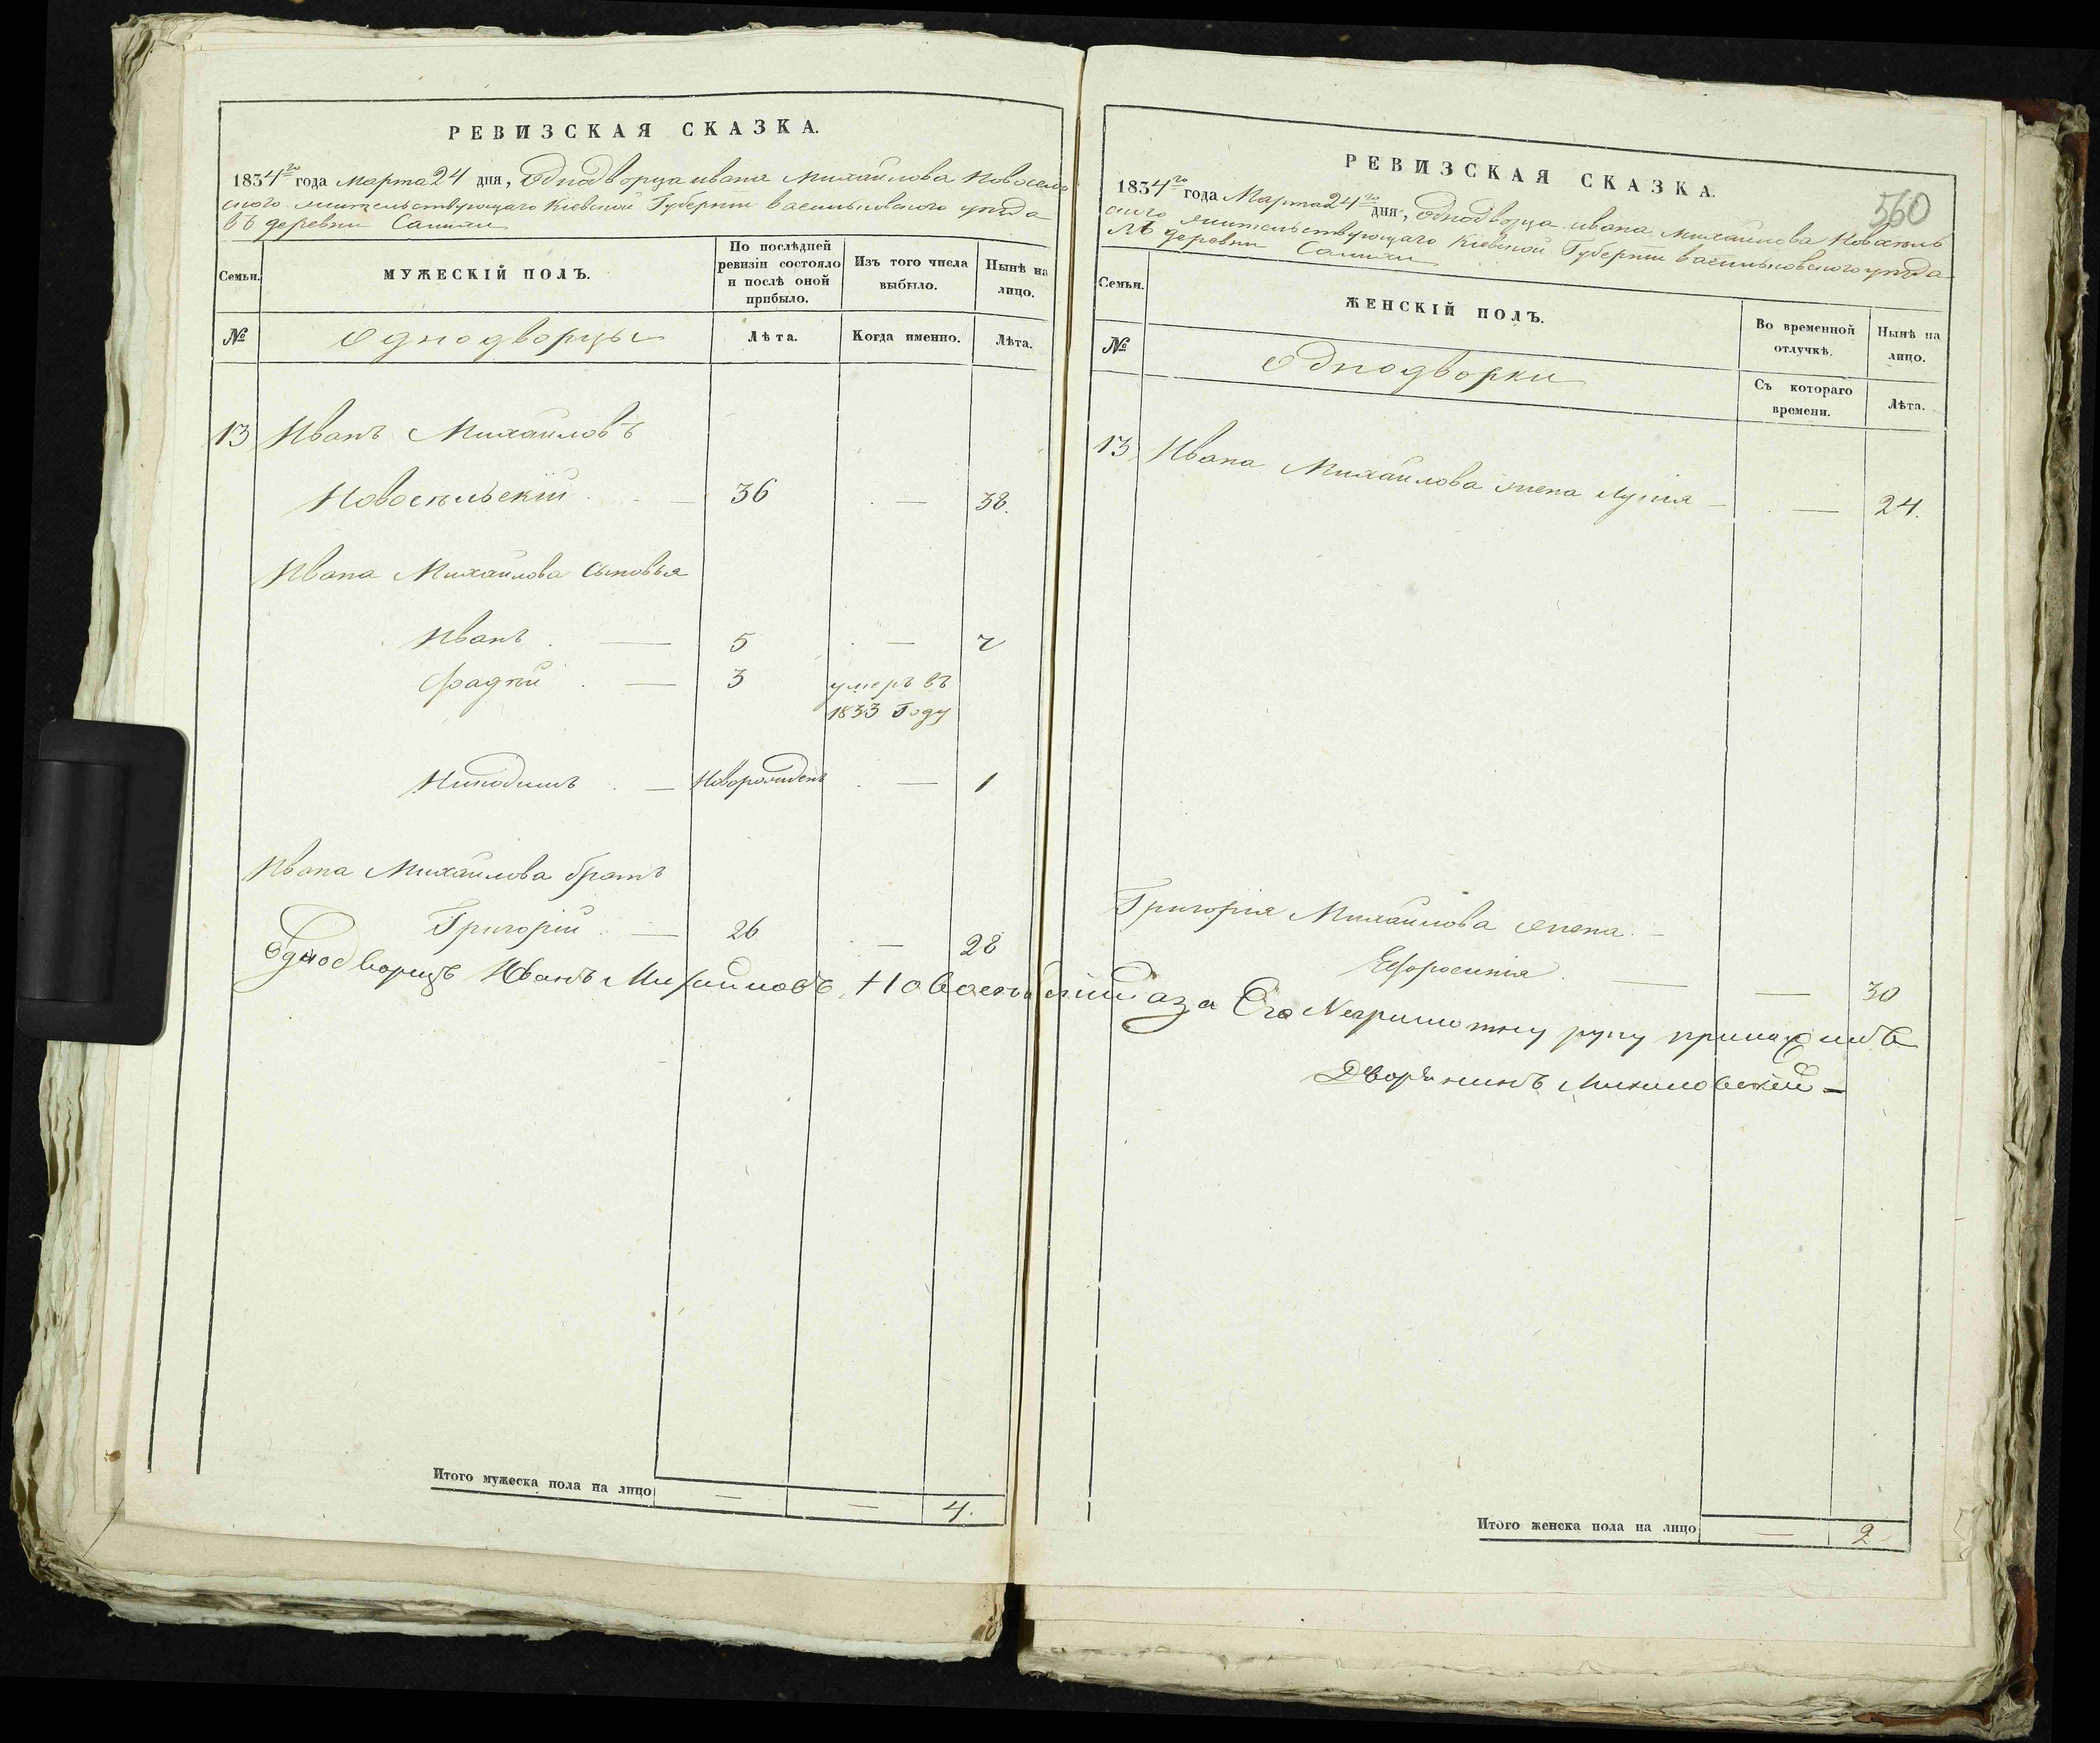 РЕВИЗСКАЯ СКАЗКА.
1834го года Марта 24 дня, Однодворца ивана Михайлова Новосель
ского жительствующаго Кіевской Губерніи васильковского уѣзда
въ деревни
Семьи.
МУЖЕСКІЙ ПОЛЪ.
По послѣдней
ревизіи состояло
и послѣ оной
прибыло.
Изъ того числа
выбыло.
Нынѣ на
лицо.
№
Однодворцы
Лѣта.
Когда именно.
Лѣта.
13 Иванъ Михайловъ
Новосѣльскій . — 36 . — 38.
Ивана Михайлова сыновья
Иванъ . — 5 . — 7
Фадѣй . — 3 умеръ въ
1833 Году
Никодимъ . — Новорожденъ . — 1
Ивана Михайлова братъ
Григорій . — 26 . — 28
Однодворецъ Иванъ Михайловъ Новосельскій
Итого мужеска пола на лицо — — 4.
РЕВИЗСКАЯ СКАЗКА.
560
1834го года Марта 24го дня, Однодворца ивана Михайлова Новосѣль
ского жительствующаго Кіевской Губерніи васильковского уѣзда
деревни
Семьи.
ЖЕНСКІЙ ПОЛЪ.
Во временной
отлучкѣ.
Нынѣ на
лицо.
№
Однодворки
Съ котораго
времени.
Лѣта.
13 Ивана Михайлова жена — . — 24.
Григорія Михайлова жена . —
Ефросинія . — — 30
а за Его Неграмотну руку
Дворянинъ
Итого женска пола на лицо — 2